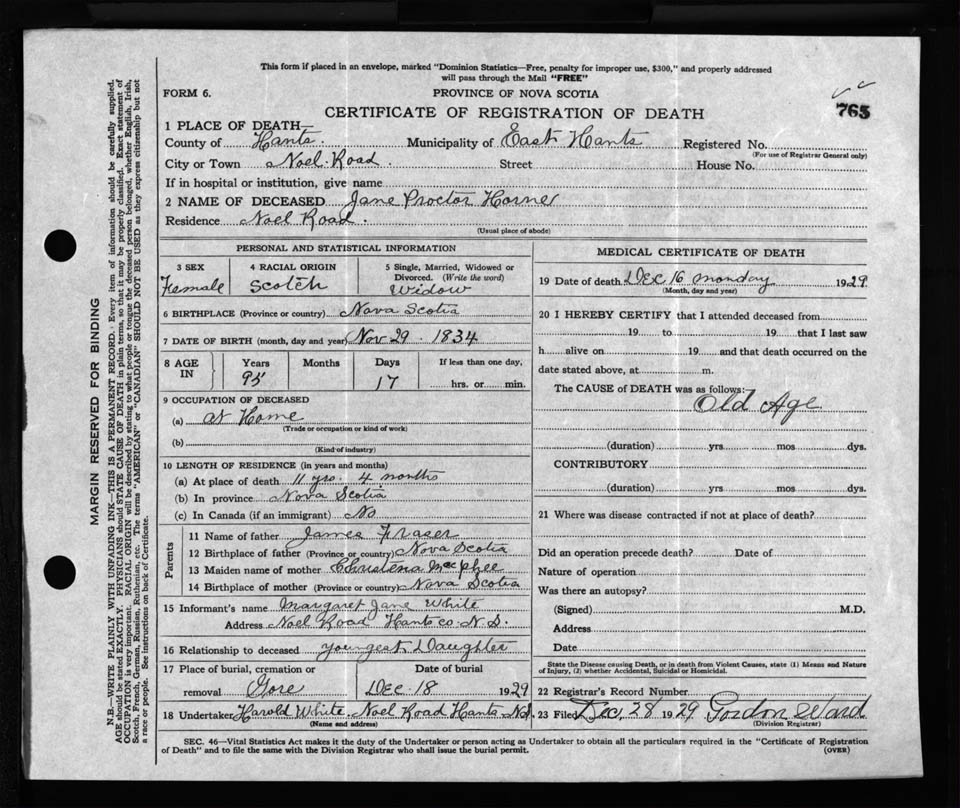 This form if placed in an envelope, marked "Dominion Statistics—Free, penalty for improper use, $300," and properly addressed
will pass through the Mail "FREE"
FORM 6.
PROVINCE OF NOVA SCOTIA
765
CERTIFICATE OF REGISTRATION OF DEATH
1 PLACE OF DEATH—
County of Hants. Municipality of East Hants Registered No.
(For use of Registrar General only)
City or Town Noel Road Street House No.
If in hospital or institution, give name
2 NAME OF DECEASED Jane Proctor Horne
Residence Noel Road.
(Usual place of abode)
PERSONAL AND STATISTICAL INFORMATION
3 SEX
Female
4 RACIAL ORIGIN
Scotch
5 Single, Married, Widowed or
Divorced. (Write the word)
Widow
6 BIRTHPLACE (Province or country) Nova Scotia
7 DATE OF BIRTH (month, day and year) Nov 29. 1834
8 AGE
IN
Years
95
Months
Days
17
If less than one day,
hrs. or min.
9 OCCUPATION OF DECEASED
(a) At Home
(Trade or occupation or kind of work)
(b)
(Kind of industry)
10 LENGTH OF RESIDENCE (in years and months)
(a) At place of death 11 yrs. 4 months
(b) In province Nova Scotia
(c) In Canada (if an immigrant) No
Parents
11 Name of father James Fraser
12 Birthplace of father (Province or country) Nova Scotia
13 Maiden name of mother Christena MacPhee
14 Birthplace of mother (Province or country) Nova Scotia
15 Informant's name Margaret Jane White
Address Noel Road Hants co. N.S.
16 Relationship to deceased youngest Daughter
17 Place of burial, cremation or
removal Gore
Date of burial
Dec 18 1929
18 Undertaker Harold White. Noel Road Hants N.S.
(Name and address)
MEDICAL CERTIFICATE OF DEATH
19 Date of death Dec 16 monday 1929.
(Month, day and year)
20 I HEREBY CERTIFY that I attended deceased from
19 to 19 that I last saw
h alive on 19 and that death occurred on the
date stated above, at m.
The CAUSE of DEATH was as follows:—
Old Age
(duration) yrs. mos dys.
CONTRIBUTORY
(duration) yrs. mos. dys.
21 Where was disease contracted if not at place of death?
Did an operation precede death? Date of
Nature of operation
Was there an autopsy?
(Signed) M.D.
Address
Date
State the Disease causing Death, or in death from Violent Causes, state (1) Means and Nature
of Injury, (2) whether Accidental, Suicidal or Homicidal.
22 Registrar's Record Number
23 Filed Dec. 28 1929 Gordon Ward
(Division Registrar)
SEC. 46—Vital Statistics Act makes it the duty of the Undertaker or person acting as Undertaker to obtain all the particulars required in the "Certificate of Registration
of Death" and to file the same with the Division Registrar who shall issue the burial permit.
(OVER)
MARGIN RESERVED FOR BINDING
N.B.—WRITE PLAINLY WITH UNFADING INK—THIS IS A PERMANENT RECORD. Every item of information should be carefully supplied.
AGE should be stated EXACTLY. PHYSICIANS should STATE CAUSE OF DEATH in plain terms, so that it may be properly classified. Exact statement of
OCCUPATION is very important. RACIAL ORIGIN will be described by stating to what people or tongue the deceased person belonged, whether English, Irish,
Scotch, French, German, Russian, Ruthenian, etc. The terms "AMERICAN" or "CANADIAN" SHOULD NOT BE USED as they express citizenship but not
a race or people. See instructions on back of Certificate.